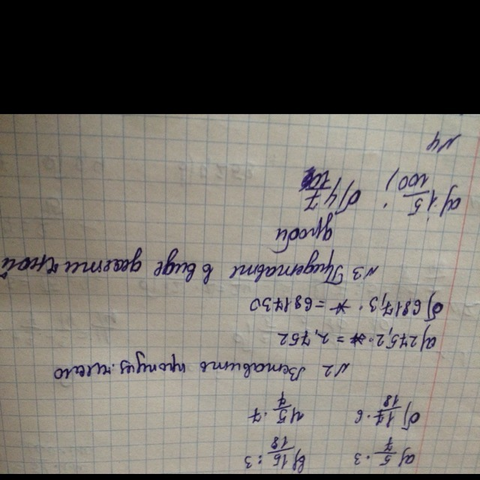 а) 5/7 · 3 в) 15/18 : 3
б) 17/18 · 6 4 5/7 · 7
№2 Вставить пропуз. число
а) 275,2 · * = 2,752
б) 6817,3 · * = 681730
№3 Представте в виде десятичной
дроби
а) 15/100; б) 4 7/10
№4